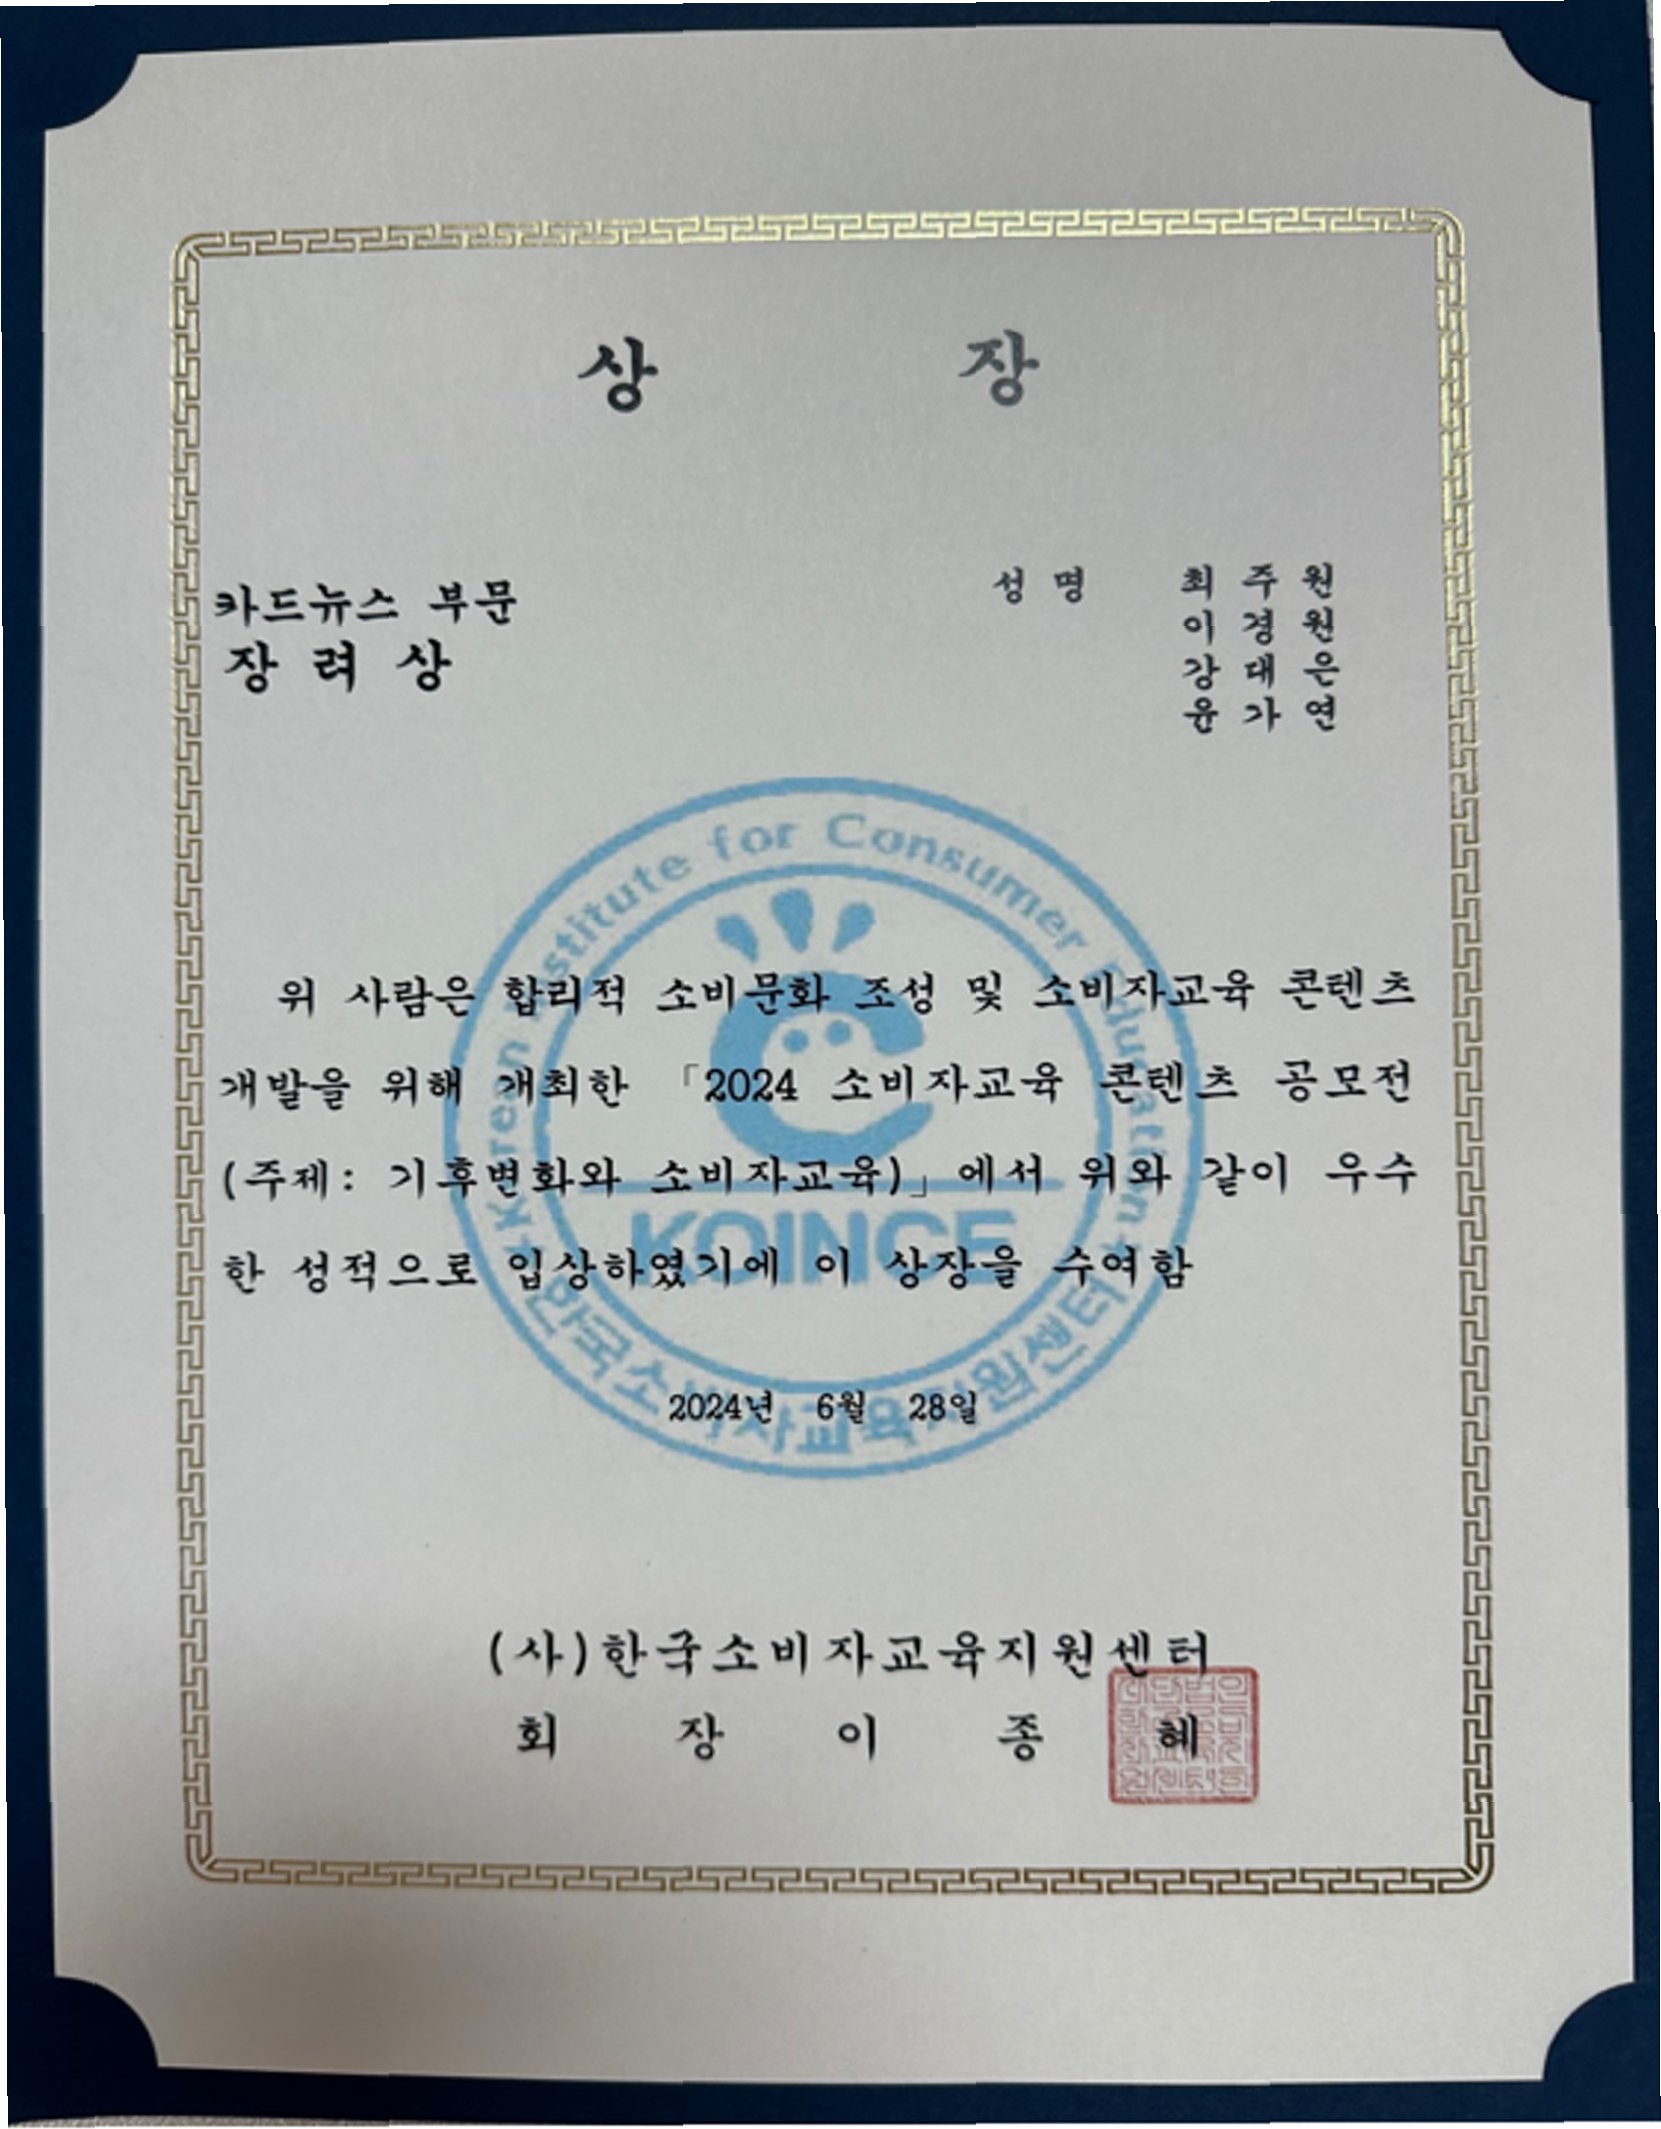 상 장
카드뉴스 부문
장 려 상
성 명 최 주 원
이 경 원
강 대 은
윤 가 연
위 사람은 합리적 소비문화 조성 및 소비자교육 콘텐츠
개발을 위해 개최한 「2024 소비자교육 콘텐츠 공모전
(주제: 기후변화와 소비자교육)」에서 위와 같이 우수
한 성적으로 입상하였기에 이 상장을 수여함
2024년 6월 28일
Korean Institute for Consumer Education
KOINCE
한국소비자교육지원센터
(사)한국소비자교육지원센터
회 장 이 종 혜